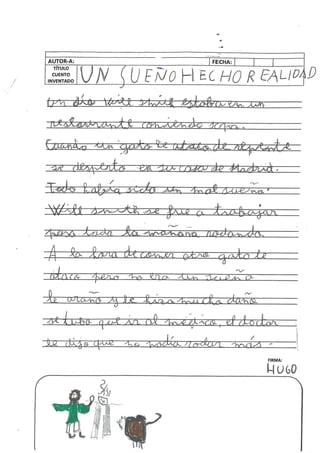 AUTOR-A:
FECHA:
TÍTULO CUENTO INVENTADO
UN SUEÑO HECHO REALIDAD
Un día Will smith estaba en un
restaurante comiendo sopa.
Cuando un gato le ataco de repente
se desperto en su casa de Madrid.
Todo había sido un mal sueño.
Will smith se fue a trabajar
paso toda la mañana rodando.
A la hora de comer otro gato le
ataco pero no era un sueño
le araño y le hizo mucho daño
se tubo que ir al médico, el doctor
le dijo que no podía rodar más.
FIRMA:
HUGO